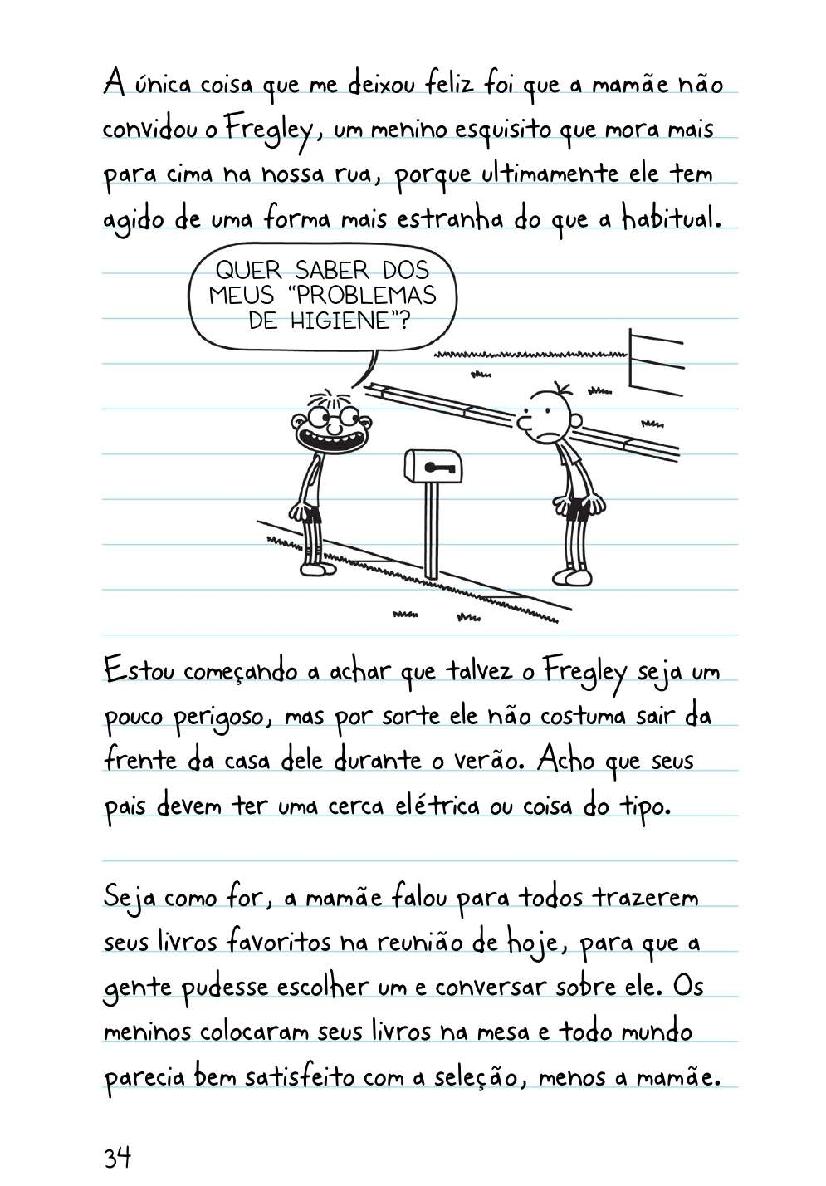 A única coisa que me deixou feliz foi que a mamãe não
convidou o Fregley, um menino esquisito que mora mais
para cima na nossa rua, porque ultimamente ele tem
agido de uma forma mais estranha do que a habitual.
QUER SABER DOS
MEUS "PROBLEMAS
DE HIGIENE"?
Estou começando a achar que talvez o Fregley seja um
pouco perigoso, mas por sorte ele não costuma sair da
frente da casa dele durante o verão. Acho que seus
pais devem ter uma cerca elétrica ou coisa do tipo.
Seja como for, a mamãe falou para todos trazerem
seus livros favoritos na reunião de hoje, para que a
gente pudesse escolher um e conversar sobre ele. Os
meninos colocaram seus livros na mesa e todo mundo
parecia bem satisfeito com a seleção, menos a mamãe.
34